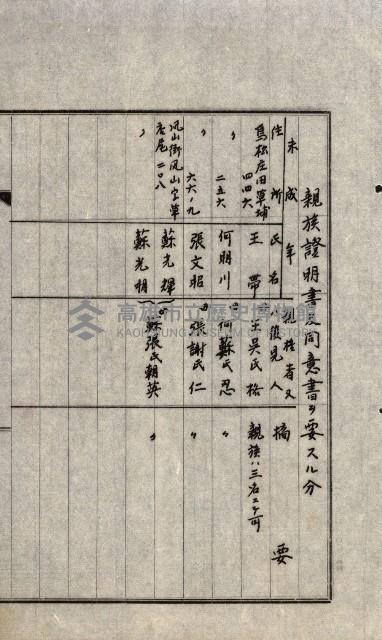 親族證明書及同意書ヲ要スル分
未成年
住所 氏名
親権者又
後見人
摘要
鳥松庄旧草埔
四四六 王 帶 王吳氏格 親族ハ三名ニテ可
〃 二五六 何明川 〃何蘇氏忍 〃
〃 六六ノ九 張文昭 〃張謝氏仁 〃
鳳山街鳳山字草
店尾二〇八 蘇光輝 〃蘇張氏朝英 〃
〃 蘇光明
高雄市立歷史博物館
KAOHSIUNG MUSEUM OF HISTORY